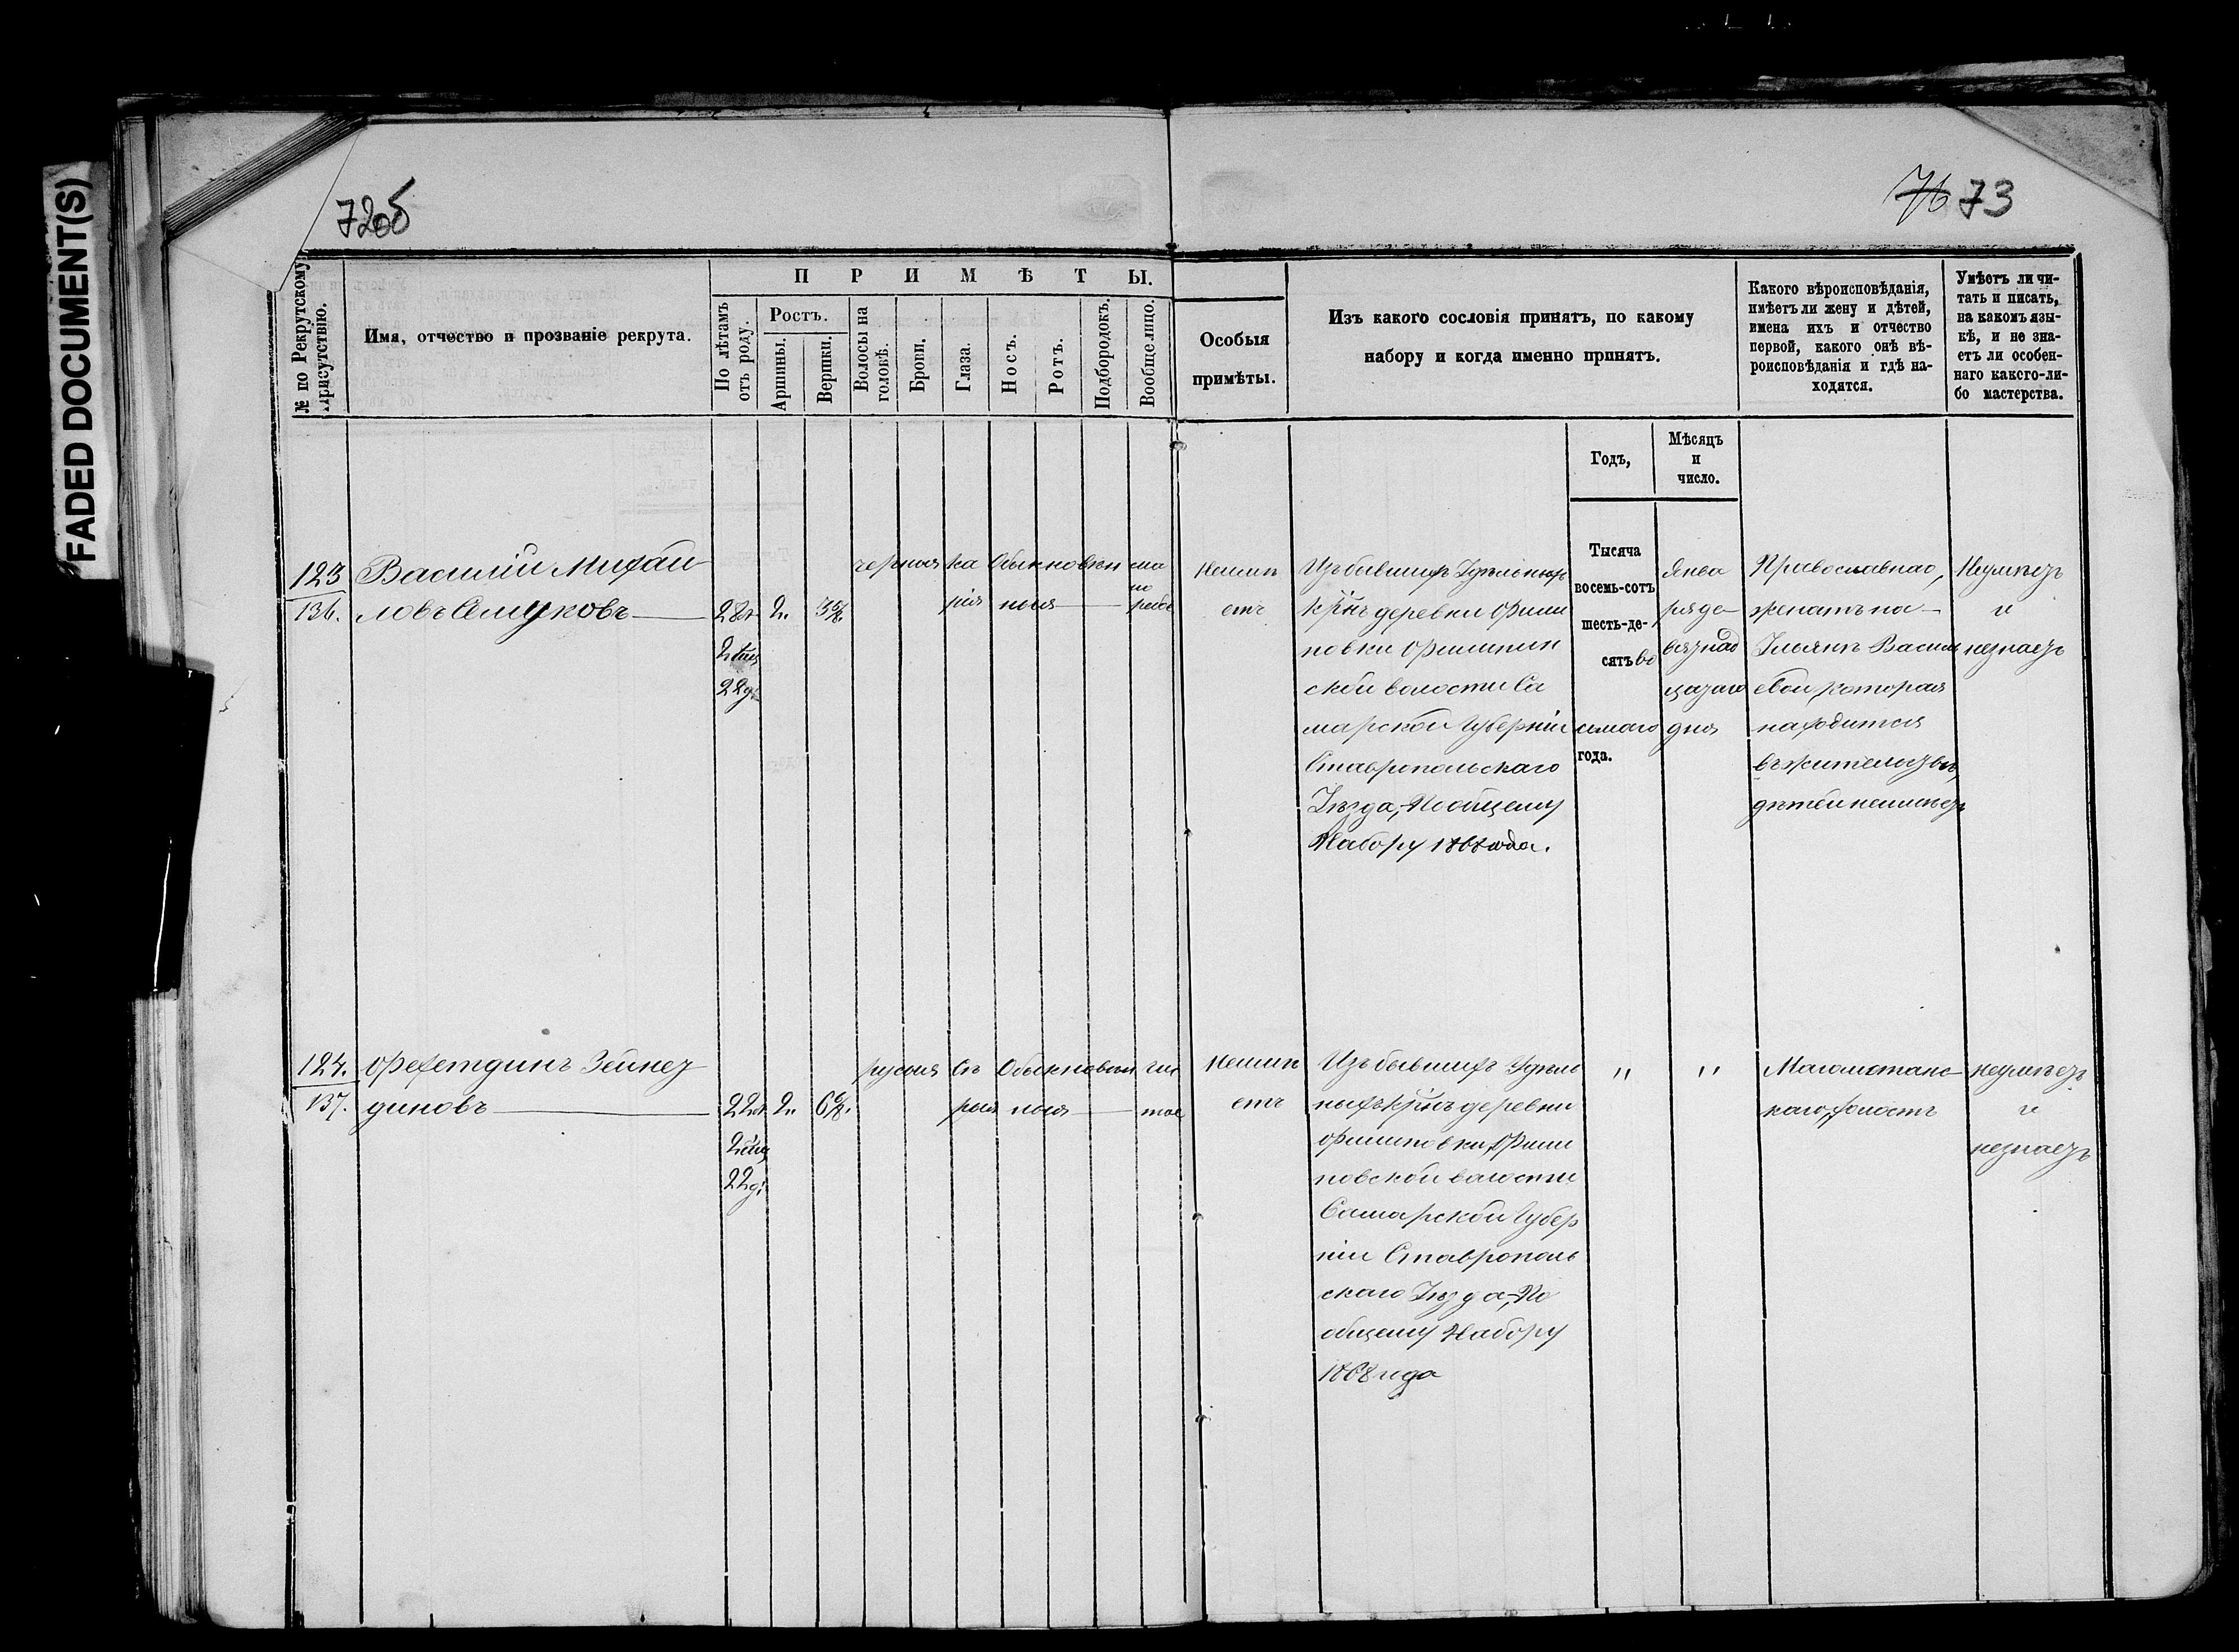 FADED DOCUMENT(S)
72об
76 73
№ по Рекрутскому
присутствію.
Имя, отчество и прозваніе рекрута.
ПРИМѢТЫ.
По лѣтамъ
отъ роду.
Ростъ.
Аршины.
Вершки.
Волосы на
головѣ.
Брови.
Глаза.
Носъ.
Ротъ.
Подбородокъ.
Вообще лицо.
Особыя
примѣты.
Изъ какого сословія принятъ, по какому
набору и когда именно принятъ.
Какого вѣроисповѣданія,
имѣетъ ли жену и дѣтей,
имена ихъ и отчество
первой, какого онѣ вѣ-
роисповѣданія и гдѣ на-
ходятся.
Умѣетъ ли чи-
тать и писать,
на какомъ язы-
кѣ, и не зна-
етъ ли особен-
наго какого-ли-
бо мастерства.
Годъ,
Мѣсяцъ
и
число.
123
136.
Василій Михаи
ловъ
2.
черныя
ка
рія
Обыкновен
ныя
Неимѣ
етъ
Изъ бывшихъ
крнъ деревни Фили
повки
ской волости Са
марской Губерніи
Ставропольскаго
Уѣзда, По общему
Набору 1868 года.
Тысяча
восемь-сотъ
шесть-де-
сятъ во
сьмаго
года.
Янва
ря де-
вятнад
цатаго
дня
Православнаго,
женатъ на
Василь
евой, которая
находится
въ жительствѣ,
дѣтей неимѣетъ
Неумѣетъ
и
незнаетъ
124.
137.
Фехетдинъ Зейнет
диновъ
2.
русыя
Сѣ
рыя
Обыкновен
ныя
чис
тое
Неимѣ
етъ
Изъ бывшихъ Удѣль
ныхъ крнъ деревни
Филиповки, Фили
повской волости
Самарской Губер
ніи Ставрополь
скаго Уѣзда, По
общему Набору
1868 года
"
"
Магометанс
каго, холостъ
неумѣетъ
и
незнаетъ